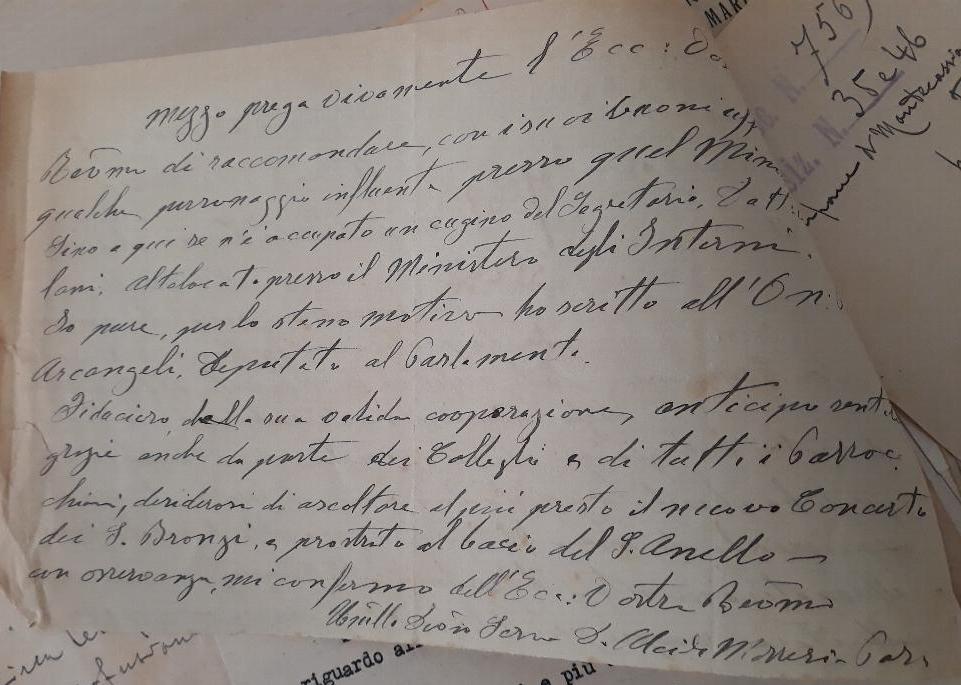 MAR
mezzo prega vivamente l'Ecc: Vo
Rēōma di raccomandare, con i suoi buoni uf
qualche personaggio influente presso quel Mini
Sino a qui se n'è occupato un cugino del Segretario,
lani, altolocato presso il Ministero degli Interni.
Io pure, per lo stesso motivo ho scritto all'On:
Arcangeli, Deputato al Parlamento.
Fiducioso della sua valida cooperazione, anticipo senti
grazie anche da parte dei Colleghi e di tutti i Parroc
chiani, desiderosi di ascoltare al più presto il nuovo Concerto
dei S. Bronzi, e prostrato al bacio del S. Anello —
con osservanza, mi confermo dell'Ecc: Vostra Rēōma
Servo D. Alcide Par.
N. 756
N. 35 e 46
Montecassi
riguardo al
e più